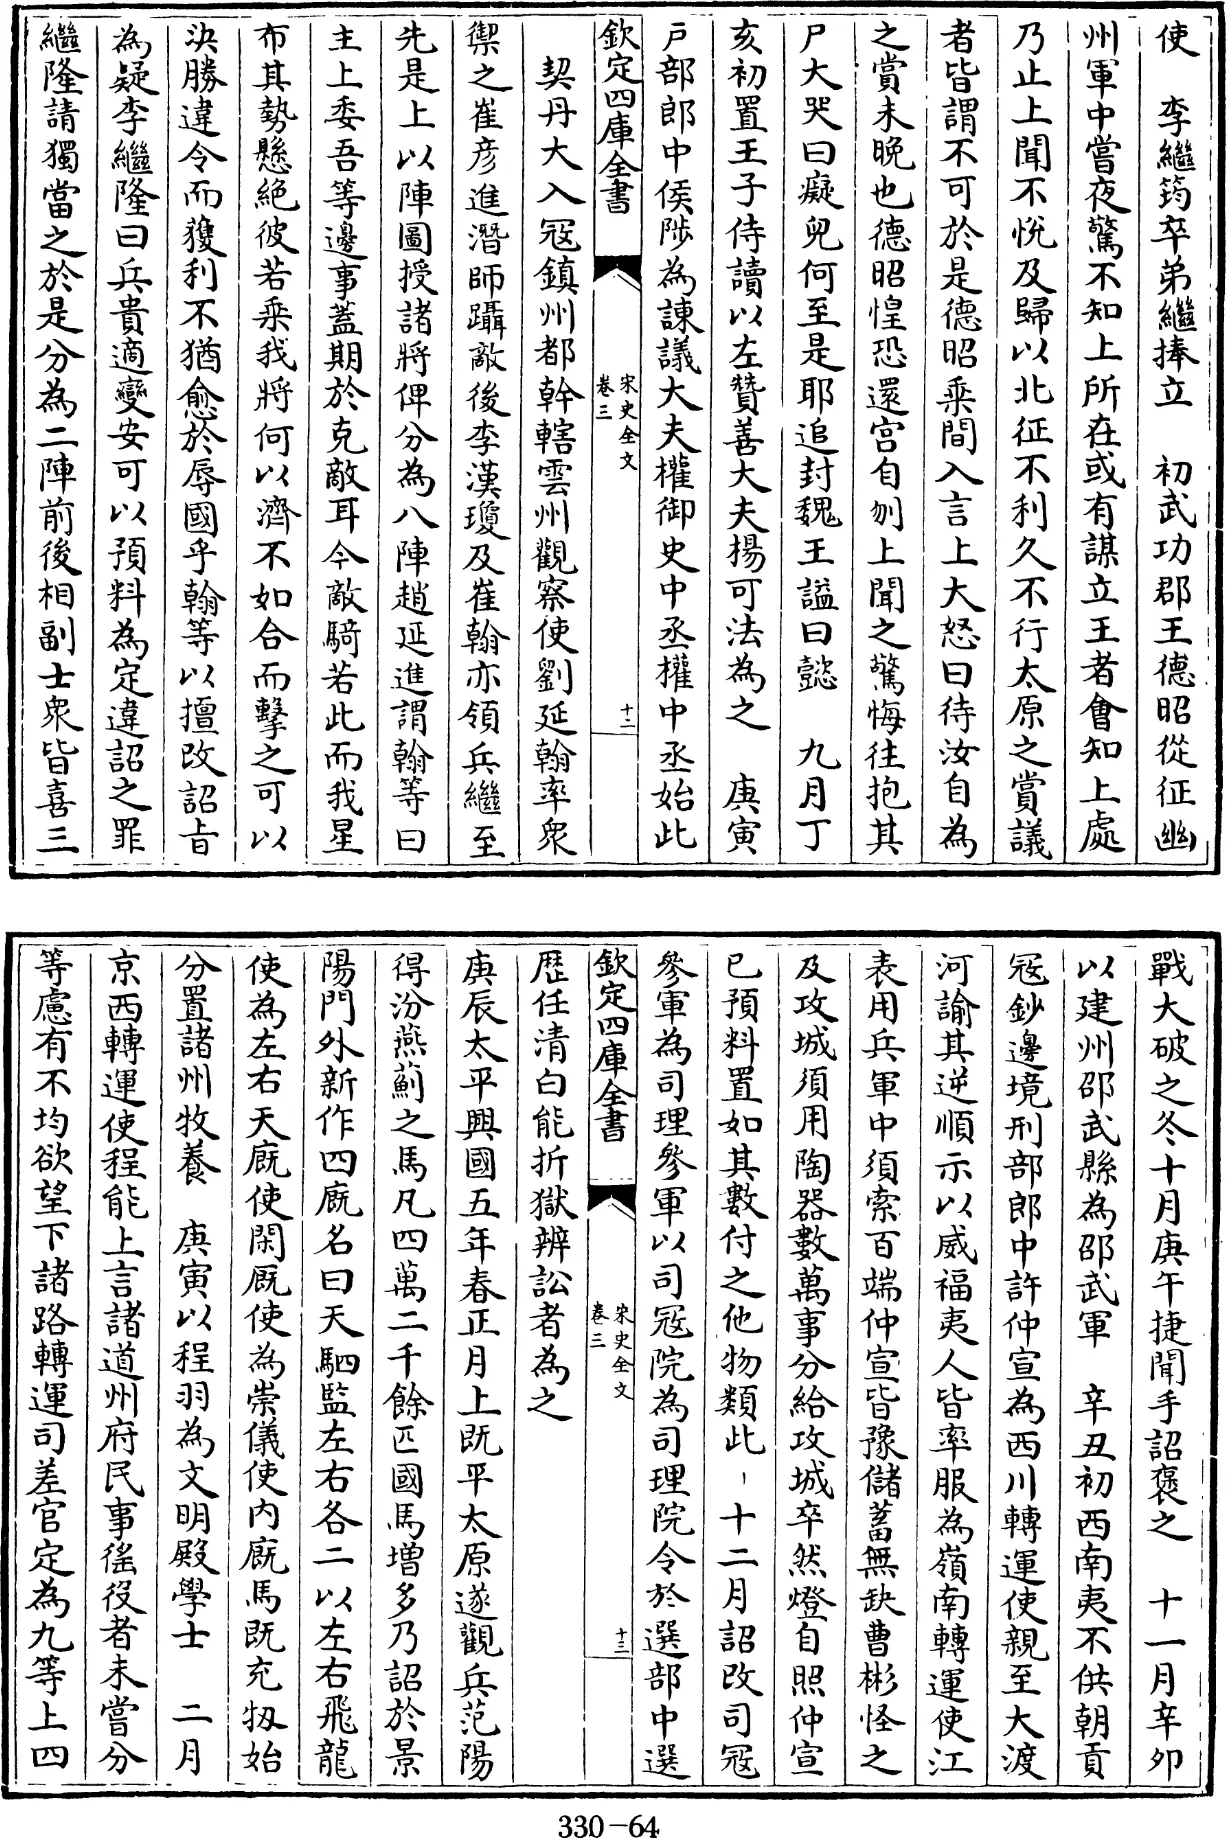 使　李繼筠卒弟繼捧立　初武功郡王德昭從征幽
州軍中嘗夜驚不知上所在或有謀立王者會知上處
乃止上聞不悅及歸以北征不利久不行太原之賞議
者皆謂不可於是德昭乘間入言上大怒曰待汝自為
之賞未晚也德昭惶恐還宫自刎上聞之驚悔往抱其
尸大哭曰癡兒何至是耶追封魏王諡曰懿　九月丁
亥初置王子侍讀以左贊善大夫楊可法為之　庚寅
戸部郎中侯陟為諫議大夫權御史中丞權中丞始此
欽定四庫全書
宋史全文
卷三
十二
契丹大入寇鎮州都幹轄雲州觀察使劉延翰率衆
禦之崔彦進潛師躡敵後李漢瓊及崔翰亦領兵繼至
先是上以陣圖授諸將俾分為八陣趙延進謂翰等曰
主上委吾等邊事蓋期於克敵耳今敵騎若此而我星
布其勢懸絶彼若乘我將何以濟不如合而擊之可以
決勝違令而獲利不猶愈於辱國乎翰等以擅改詔旨
為疑李繼隆曰兵貴適變安可以預料為定違詔之罪
繼隆請獨當之於是分為二陣前後相副士衆皆喜三
戰大破之冬十月庚午捷聞手詔褒之　十一月辛卯
以建州邵武縣為邵武軍　辛丑初西南夷不供朝貢
寇鈔邊境刑部郎中許仲宣為西川轉運使親至大渡
河諭其逆順示以威福夷人皆率服為嶺南轉運使江
表用兵軍中須索百端仲宣皆豫儲蓄無缺曹彬怪之
及攻城須用陶器數萬事分給攻城卒然燈自照仲宣
已預料置如其數付之他物類此　十二月詔改司寇
參軍為司理參軍以司寇院為司理院令於選部中選
欽定四庫全書
宋史全文
卷三
十三
歴任清白能折獄辨訟者為之
庚辰太平興國五年春正月上既平太原遂觀兵范陽
得汾燕薊之馬凡四萬二千餘匹國馬增多乃詔於景
陽門外新作四廐名曰天駟監左右各二以左右飛龍
使為左右天廐使閑廐使為崇儀使内廐馬既充牣始
分置諸州牧養　庚寅以程羽為文明殿學士　二月
京西轉運使程能上言諸道州府民事徭役者未嘗分
等慮有不均欲望下諸路轉運司差官定為九等上四
330-64